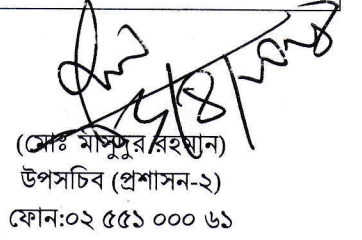 (মোঃ মাসুদুর রহমান)
উপসচিব (প্রশাসন-২)
ফোন:০২ ৫৫১ ০০০ ৬১